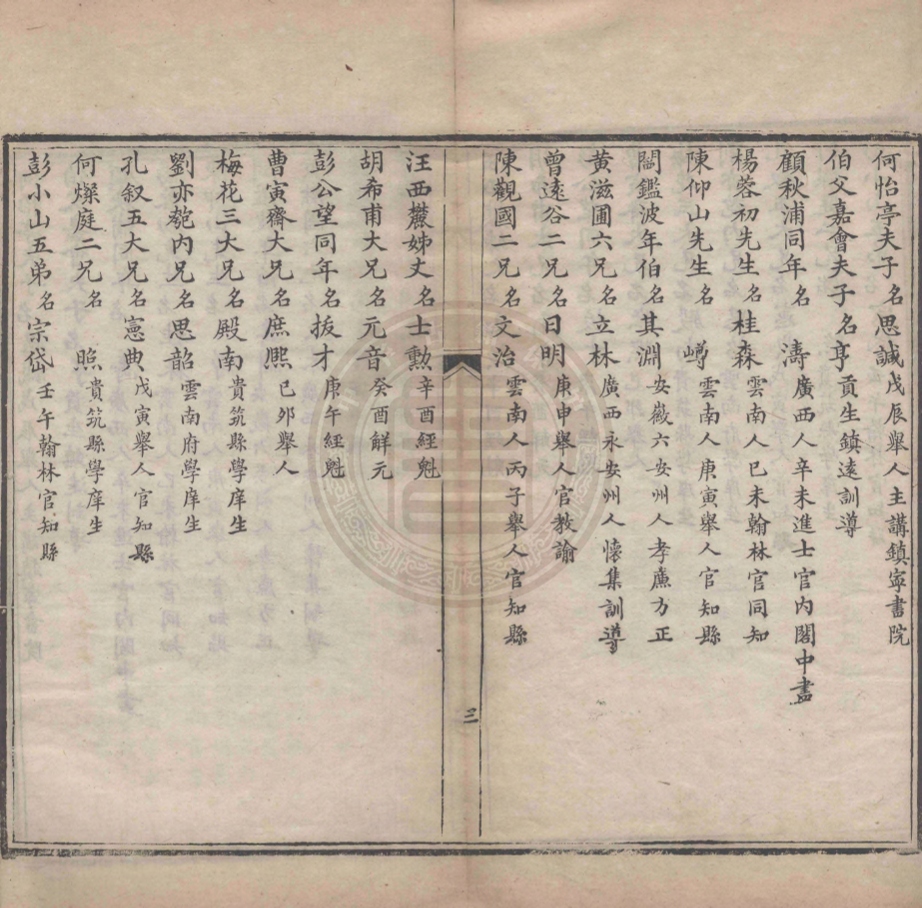 何怡亭夫子名思誠戊辰舉人主講鎮寧書院
伯父嘉會夫子名亨貢生鎮遠訓導
顧秋浦同年名濤廣西人辛未進士官內閣中書
楊蓉初先生名桂森雲南人已未翰林官同知
陳仰山先生名嶟雲南人庚寅舉人官知縣
閻鑑波年伯名其淵安徽六安州人孝廉方正
黃滋圃六兄名立林廣西永安州人懷集訓導
曾遠谷二兄名日明庚申舉人官教諭
陳觀國二兄名文治雲南人丙子舉人官知縣
三
汪西麓姊丈名士勲辛酉經魁
胡希甫大兄名元音癸酉解元
彭公望同年名拔才庚午經魁
曹寅齋大兄名庶熙已夘舉人
梅花三大兄名殿南貴筑縣學庠生
劉亦匏內兄名思韶雲南府學庠生
孔叙五大兄名憲典戊寅舉人官知縣
何燦庭二兄名照貴筑縣學庠生
彭小山五弟名宗岱壬午翰林官知縣